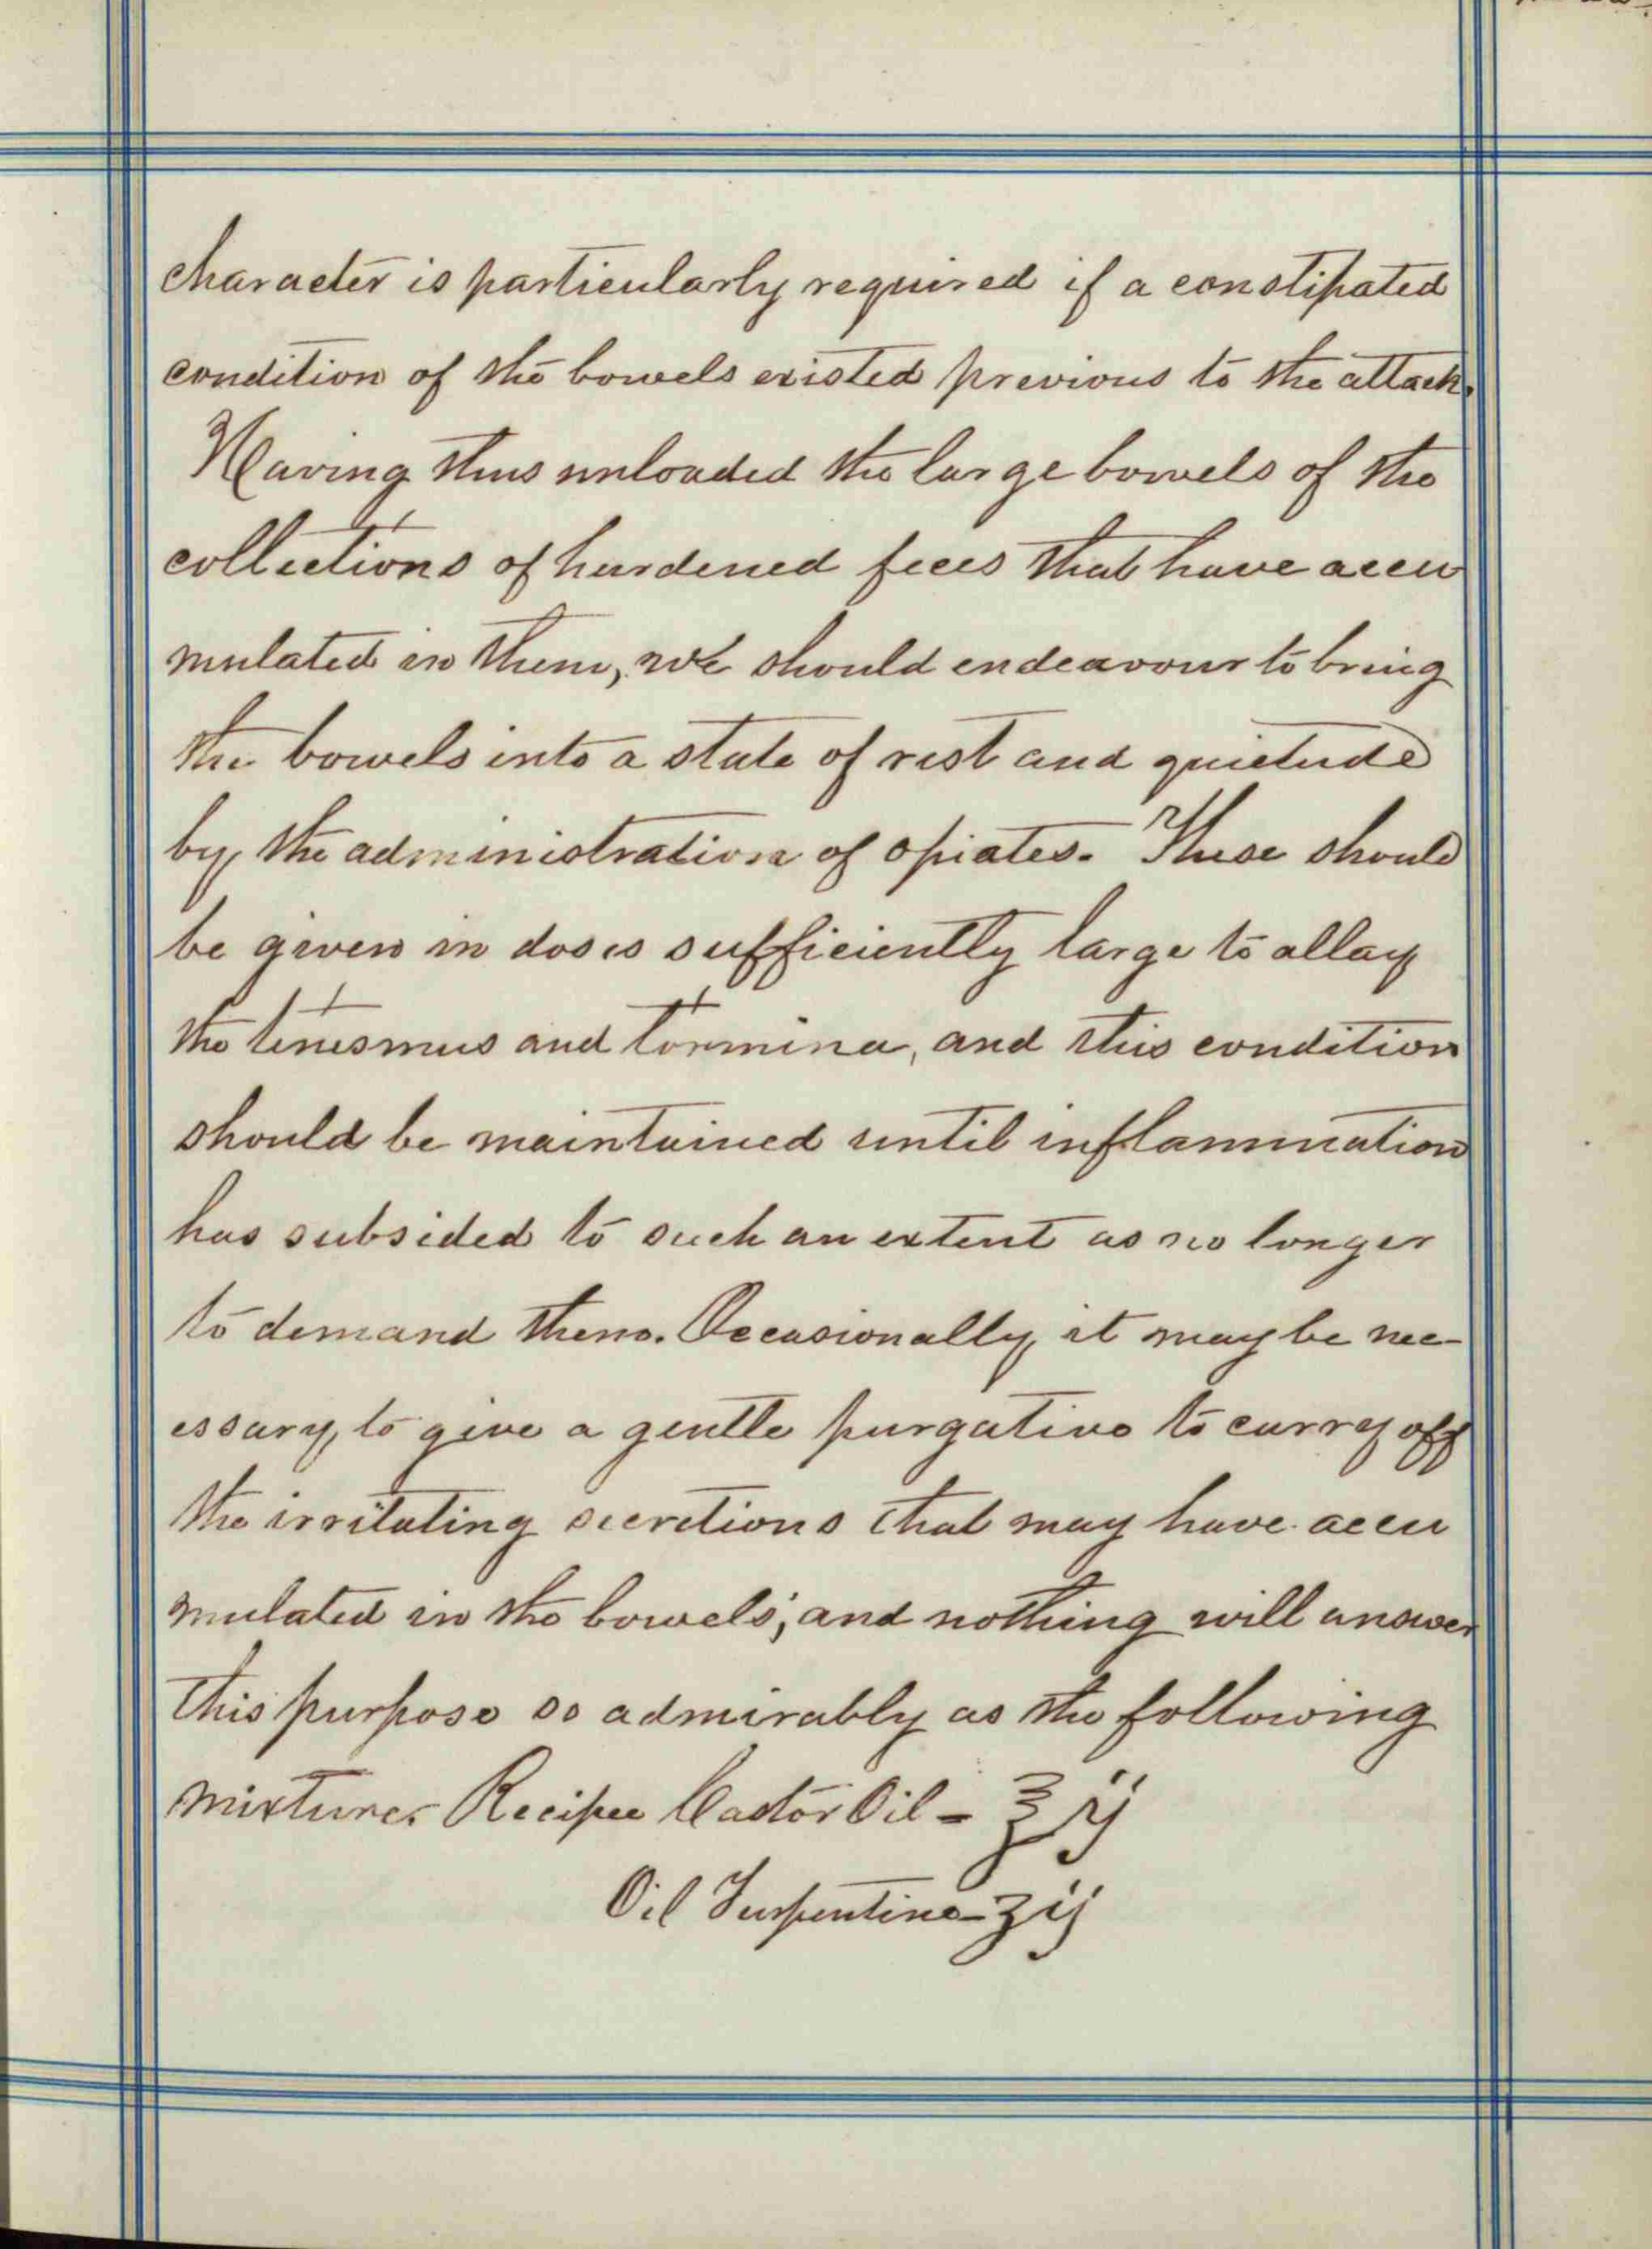 character is particularly required if a constipated
condition of the bowels existed previous to the attack.
Having thus unloaded the large bowels of the
collections of hardened feces that have accu
mulated in them, we should endeavour to bring
the bowels into a state of rest and quietude
by the administration of opiates. These should
be given in doses sufficiently large to allay
the tenesmus and tormina, and this condition
should be maintained until inflammation
has subsided to such an extent as no longer
to demand them. Occasionally it may be nec-
essary, to give a gentle purgative to carry off
the irritating secretions that may have accu
mulated in the bowels; and nothing will answer
this purpose so admirably as the following
mixture. Recipee Castor Oil - ℥ ij
Oil Turpentine - ʒ ij